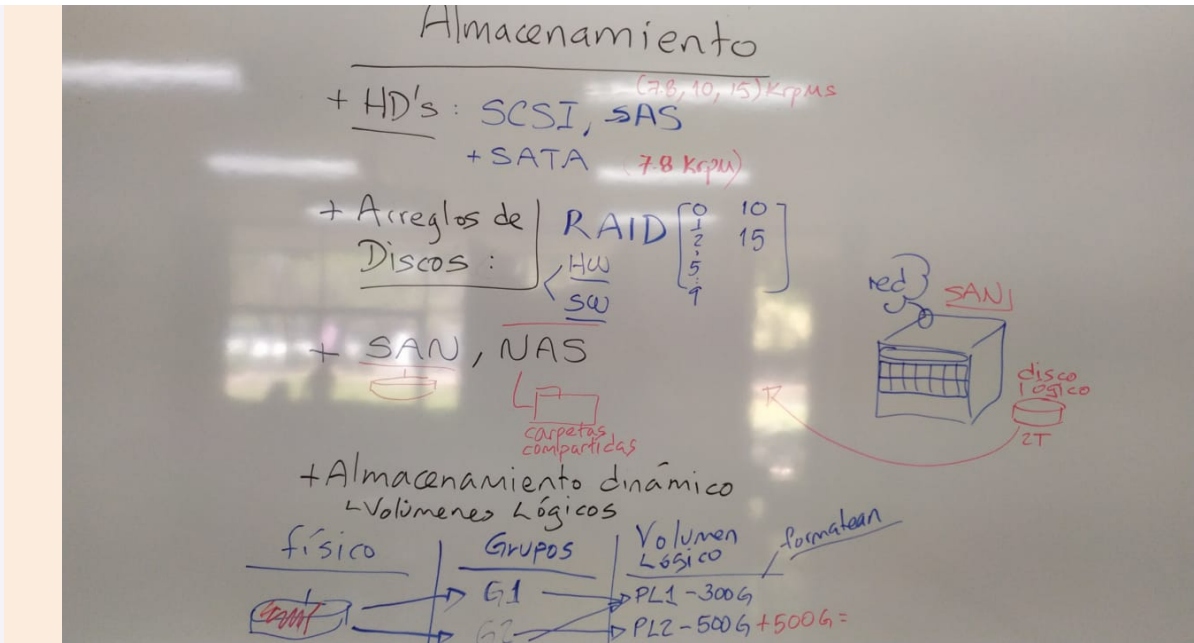 Almacenamiento
(7.8, 10, 15) Krpms
+ HD's : SCSI, SAS
+ SATA (7.8 Krpm)
+ Arreglos de Discos :
RAID
0 10
1
2 15
5
9
HW
SW
+ SAN, NAS
carpetas
compartidas
red
SAN
disco
lógico
2T
+Almacenamiento dinámico
Volúmenes Lógicos
físico Grupos Volumen Lógico formatean
G1 PL1-300G
G2 PL2-500G+500G=